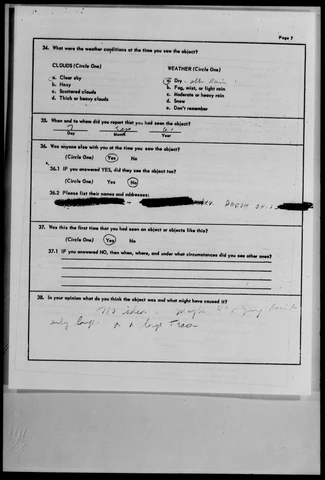 Page 7
34. What were the weather conditions at the time you saw the object?
CLOUDS (Circle One) WEATHER (Circle One)
a. Clear sky a. Dry
b. Hazy b. Fog, mist, or light rain
c. Scattered clouds c. Moderate or heavy rain
d. Thick or heavy clouds d. Snow
e. Don't remember
35. When and to whom did you report that you had seen the object?
7
Day Month Year
36. Was anyone else with you at the time you saw the object?
(Circle One) Yes No
36.1 IF you answered YES, did they see the object too?
(Circle One) Yes No
36.2 Please list their names and addresses:
37. Was this the first time that you had seen an object or objects like this?
(Circle One) Yes No
37.1 IF you answered NO, then when, where, and under what circumstances did you see other ones?
38. In your opinion what do you think the object was and what might have caused it?
No idea.
only large or a large Tracer